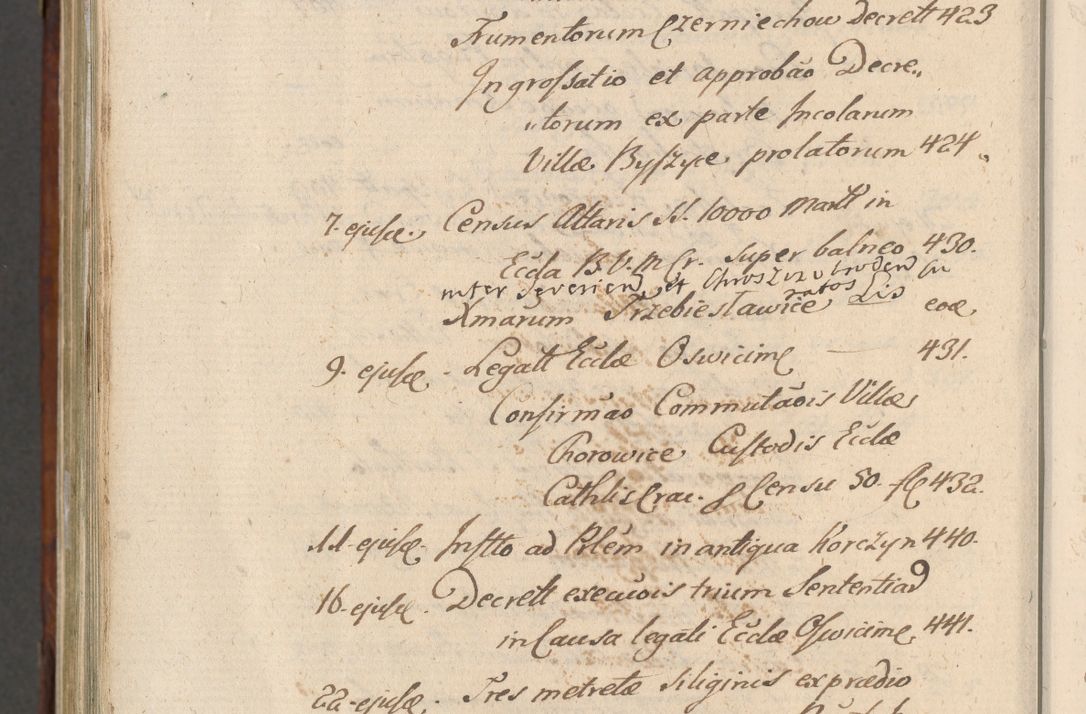 Frumentorum Czerniechow Decrett 423
Ingrossatio et approbão Decre„
„torum ex parte Incolarum
Villæ Byszyce prolatorum 424
7. ejusdæ. Census Altaris SS. 10000 Mart in
Eccla B.V.M Cr. super balneo 430.
inter Severiend et
Xmarum Trzebiesławice Lis eoæ
9. ejusdæ - Legatt Ecclæ Oswicimę 431.
Confirmão Commutãois Villæ
Chorowice Custodis Ecclæ
Cathlis Crac. p Censu 50. fl 432.
11. ejusdæ. Instto ad Prlem in antiqua Korczyn 440.
16. ejusdæ. Decrett execuõis trium Sententiad
in Causa legati Ecclæ Oswicimę 441.
22. ejusdæ. Tres metretæ siliginis ex prædio